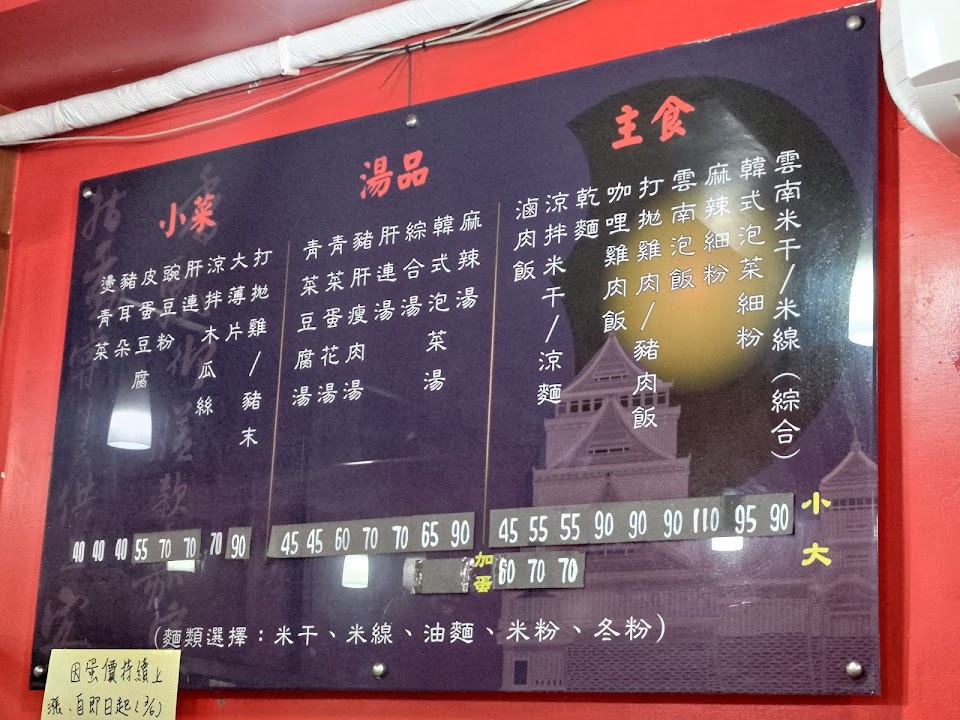 主食
雲南米干/米線(綜合)
韓式泡菜細粉
麻辣細粉
雲南泡飯
打拋雞肉/豬肉飯
咖哩雞肉飯
乾麵
涼拌米干/涼麵
滷肉飯
湯品
麻辣湯
韓式泡菜湯
綜合湯
肝連湯
豬肝瘦肉湯
青菜蛋花湯
青菜豆腐湯
小菜
打拋雞/豬末
大薄片
涼拌木瓜絲
肝連
豌豆粉
皮蛋豆腐
豬耳朵
燙青菜
40 40 40 55 70 70 70 90
45 45 60 70 70 65 90
45 55 55 90 90 90 110 95 90 小
加蛋
60 70 70 大
(麵類選擇：米干、米線、油麵、米粉、冬粉)
因蛋價持續上
漲、自即日起(3/6)